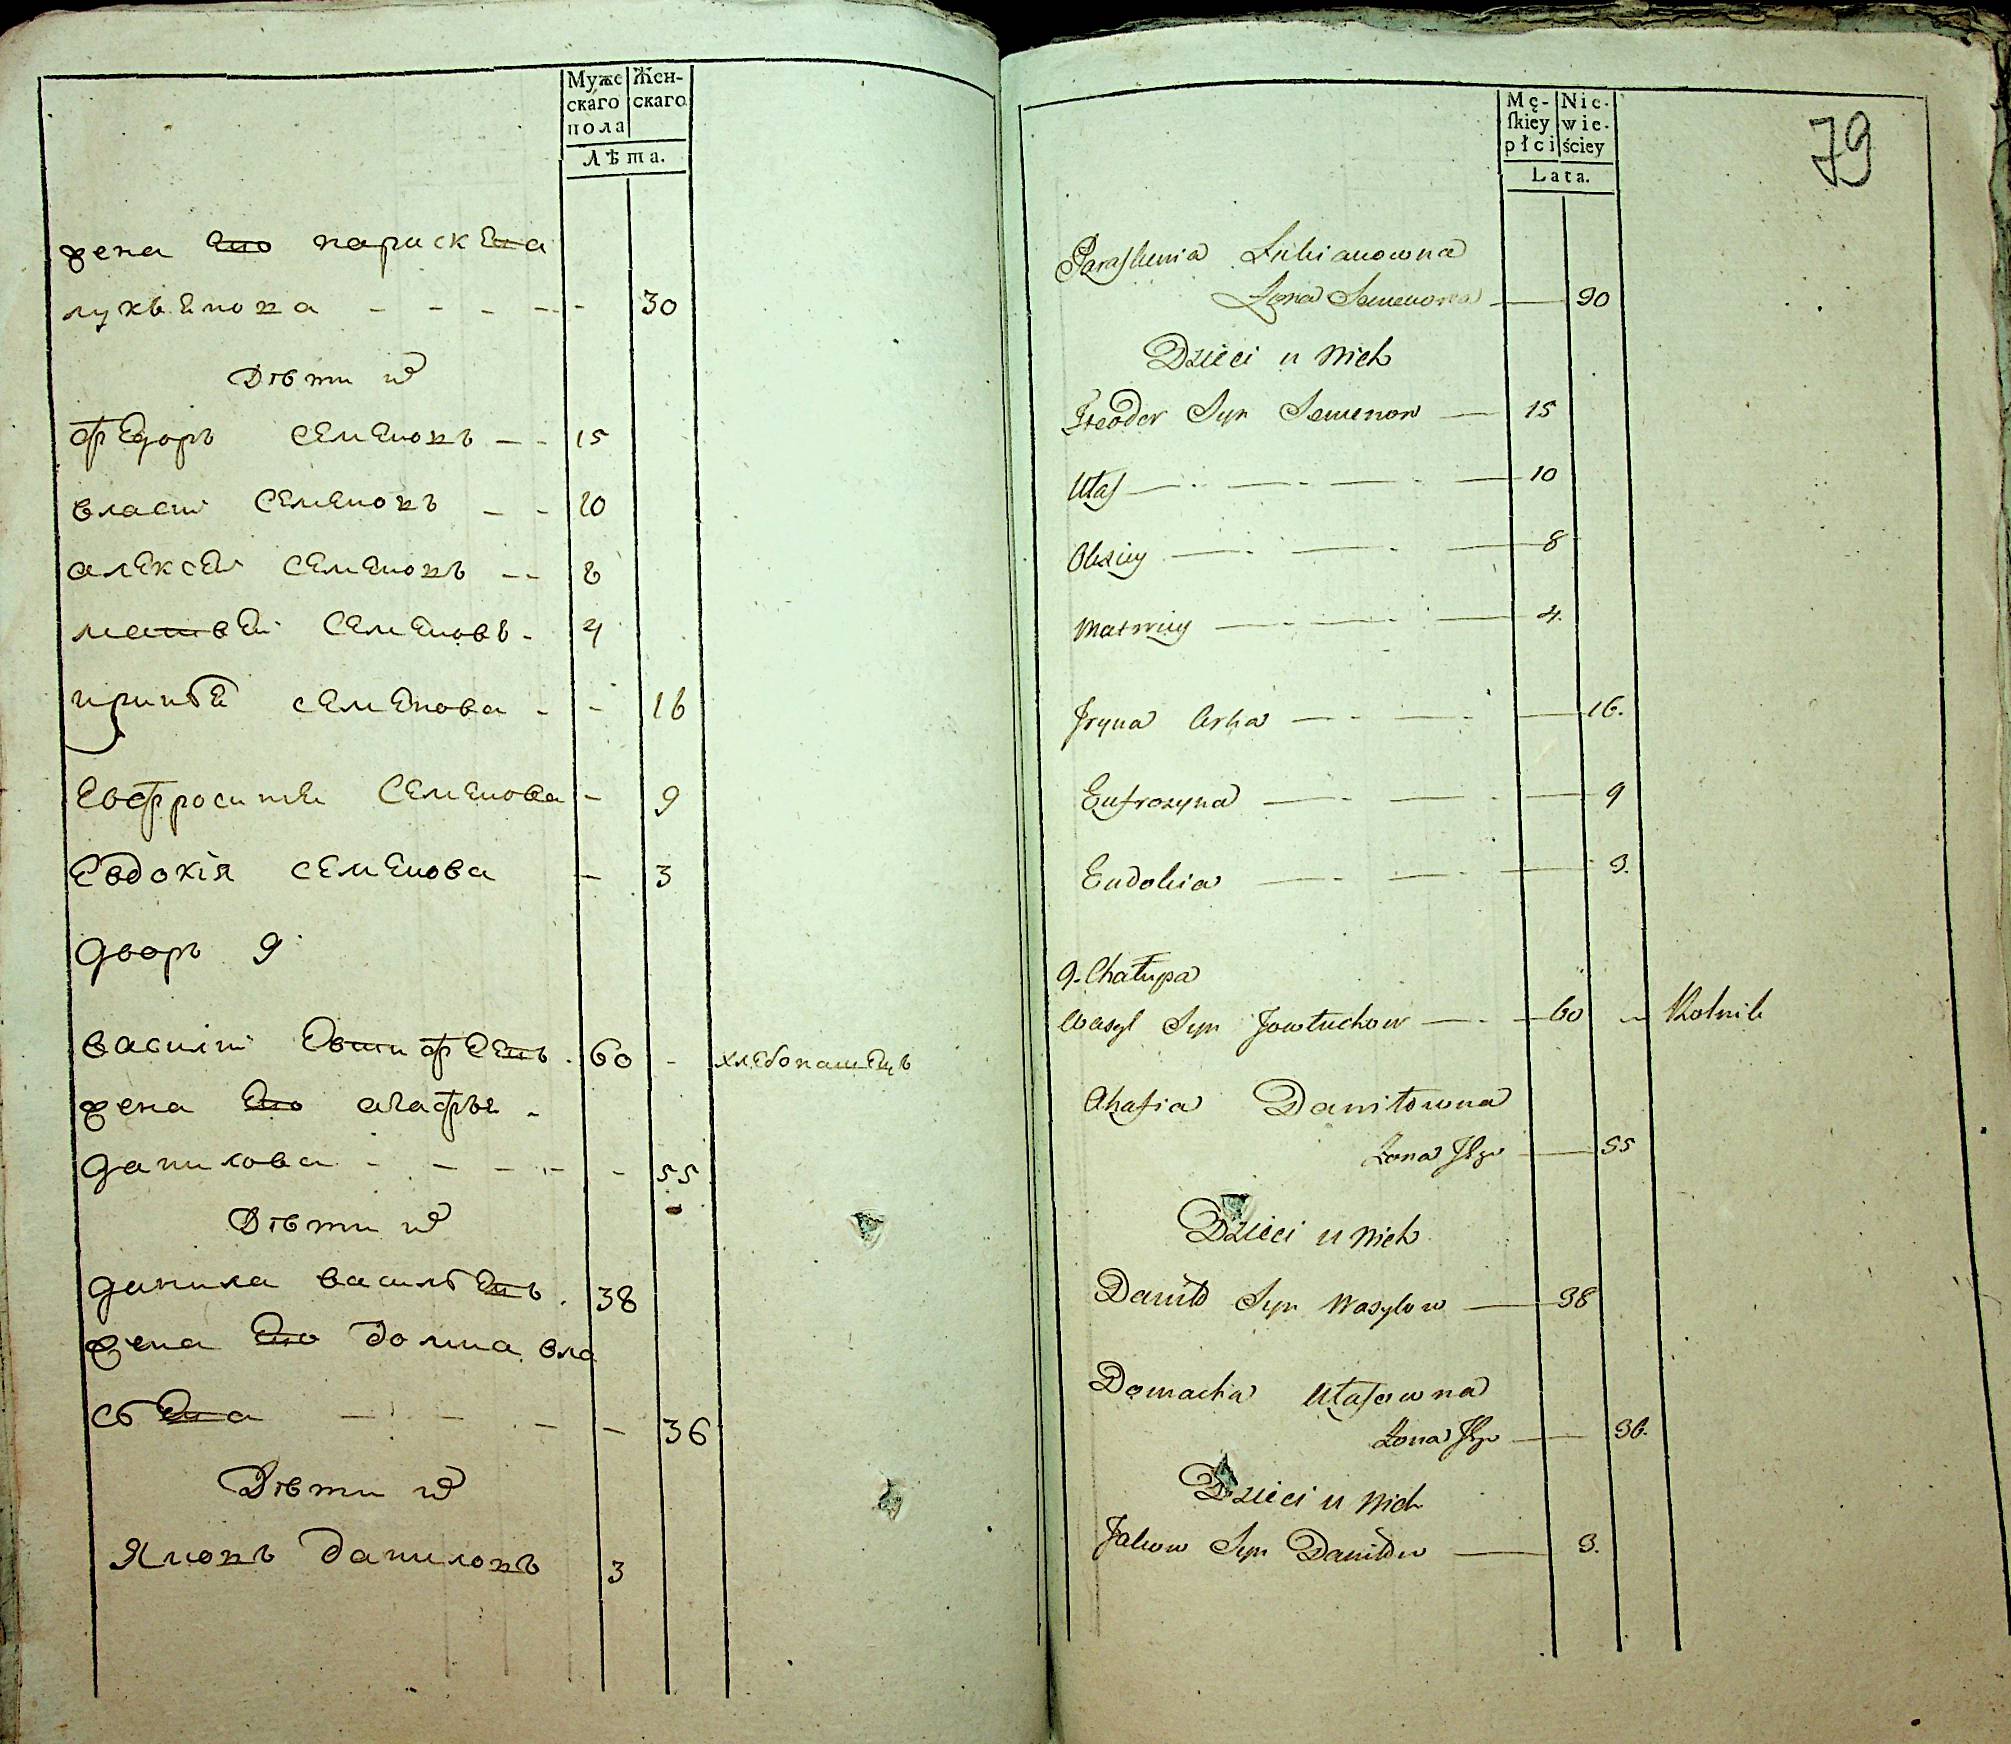 Муже
скаго
пола
Жен-
скаго
Лѣта.
жена его парискева
лукьянова - - - - - 30
Дѣти их
Федоръ Семеновъ - - 15
власий Семеновъ - - 10
алексей Семеновъ - - 8
матвей Семеновъ - 4
ирина семенова - - 16
Евфросиния Семенова - 9
Евдокія семенова - 3
дворъ 9
василий 60 - хлебопашецъ
жена его агафья -
данилова - - - - - 55
Дѣти их
данила васильевъ . 38
жена его домна вла
сьева - - - - - 36
Дѣти их
Яковъ даниловъ 3
Mę-
skiey
płci
Nie-
wie-
ściey
Lata.
79
Paraskewia Łukianowna
Żona Semenowa 30
Dzieci u Nich
Fteodor Syn Semenow 15
Ułas 10
Olexiey 8
Matwiey 4.
Jryna Corka 16.
Eufrozyna 9
Eudokia 3.
9. Chałupa
Wasyl Syn Jowtuchow 60 Rolnik
Ahafia Daniłowna
Żona Jego 55
Dzieci u Nich
Daniło Syn Wasylow 38
Domacha Ułasowna
Żona Jego 36.
Dzieci u Nich
Jakow Syn Daniłow 3.